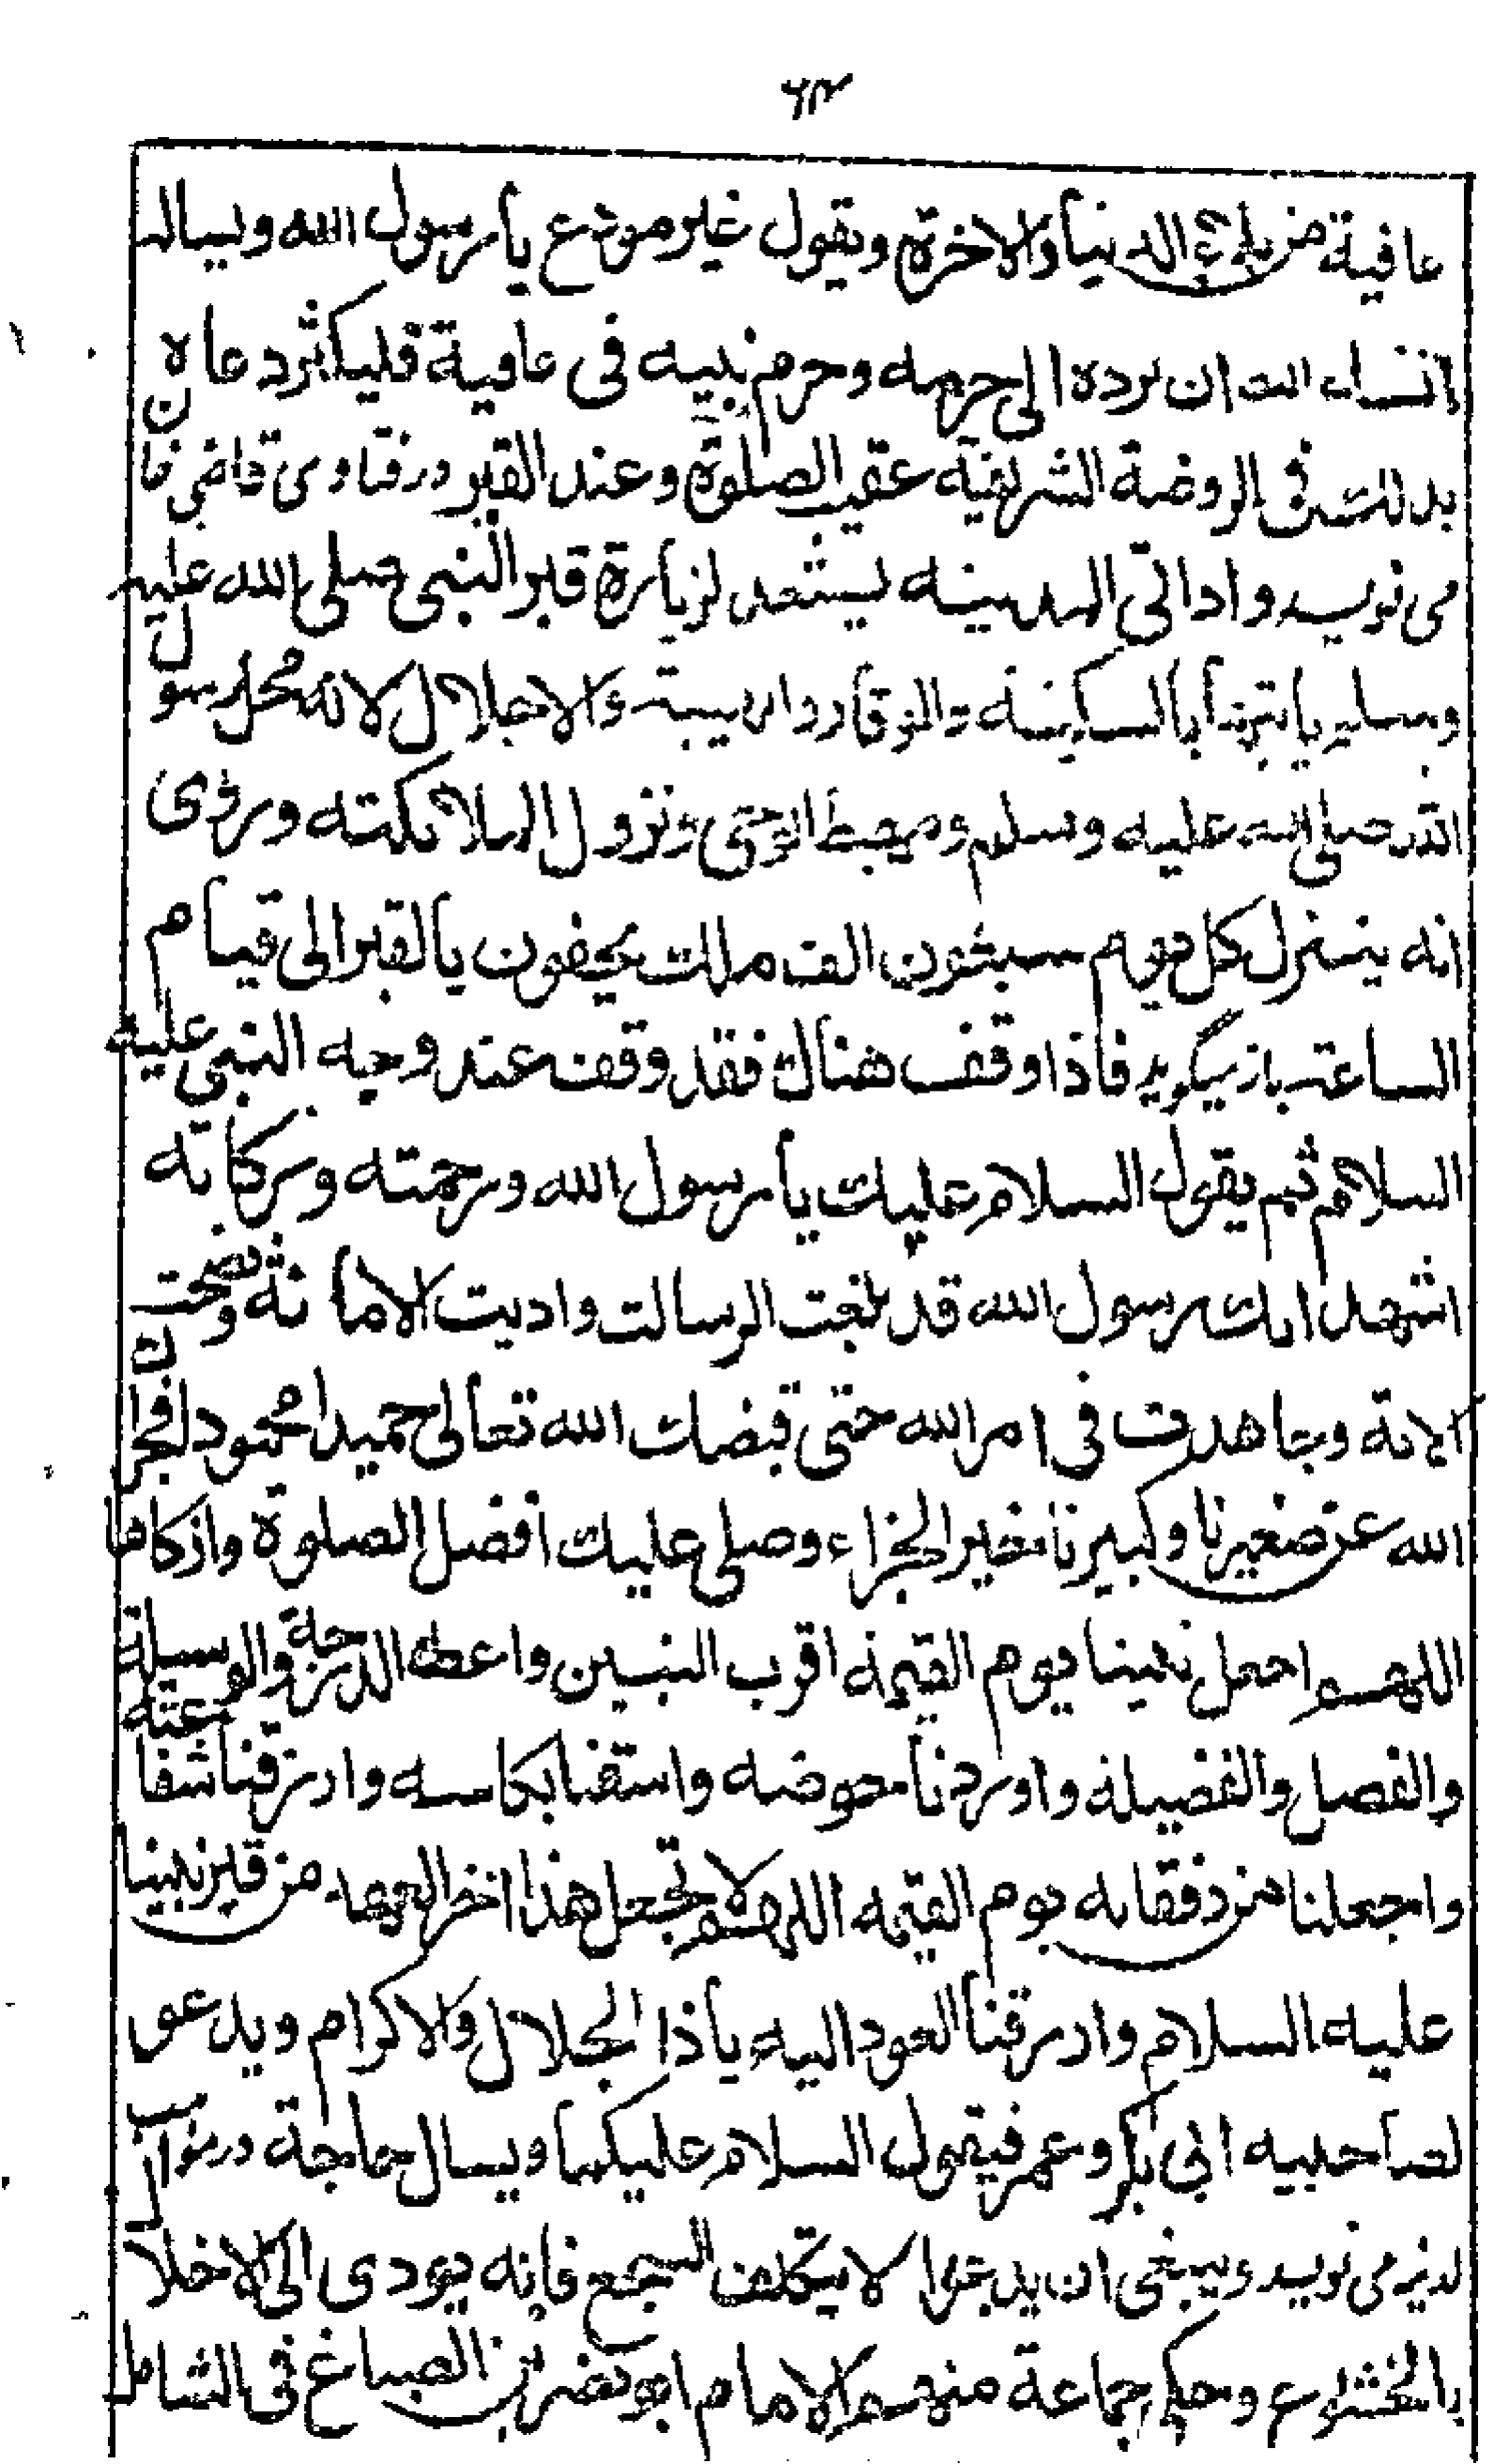 ۶۳
عافية من بلاء الدنيا والاخرة ويقول غير مودع يا رسول الله ويسال
ان يرده الى حرمه وحرم نبيه فى عافية فليكثر دعاه
بذلك فى الروضة الشريفة عقيب الصلوة وعند القبر در فتاوى قاضى خان
مى نويسد واذا اتى المدينه يستعد لزيارة قبر النبى صلى الله عليه
وسلم بالسكينة والوقار والهيبة والاجلال لانه محل رسول
الله صلى الله عليه وسلم ومهبط الوحى ونزول الملائكته وروى
انه ينزل كل يوم سبعون الف ملك يحفون بالقبر الى قيام
الساعة باز ميگويد فاذا وقف هناك فقد وقف عند وجه النبى عليه
السلام ثم يقول السلام عليك يا رسول الله ورحمته وبركاته
اشهد انك رسول الله قد بلغت الرسالت واديت الامانة ونصحت
الامة وجاهدت فى امر الله حتى قبضك الله تعالى حميدا محمودا فجزاك
الله عن صغيرنا وكبيرنا خير الجزاء وصلى عليك افضل الصلوة وازكاها
اللهم اجعل نبينا يوم القيمة اقرب النبيين واعطه الدرجة والوسيلة
والفضل والفضيلة واوردنا حوضه واسقنا بكاسه وارزقنا شفاعته
واجعلنا من رفقايه يوم القيمه اللهم لا تجعل هذا اخر العهد من قبر نبينا
عليه السلام وارزقنا العود اليه يا ذا الجلال والاكرام ويدعو
لصاحبيه ابى بكر وعمر فيقول السلام عليكما ويسال حاجة در مواهب
لدنيه مى نويسد وينبغى ان يدعو الا يتكلف السجع فانه يودى الى الاخلال
بالخشوع وحكى جماعة منهم الامام ابو نصر بن الصباغ فى الشامل